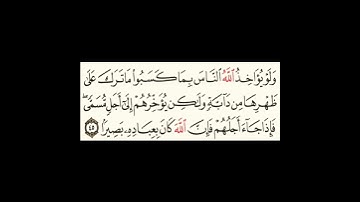 وَلَوْ يُؤَاخِذُ ٱللَّهُ ٱلنَّاسَ بِمَا كَسَبُوا۟ مَا تَرَكَ عَلَىٰ
ظَهْرِهَا مِن دَآبَّةٍ وَلَٰكِن يُؤَخِّرُهُمْ إِلَىٰٓ أَجَلٍ مُّسَمًّى ۖ
فَإِذَا جَآءَ أَجَلُهُمْ فَإِنَّ ٱللَّهَ كَانَ بِعِبَادِهِۦ بَصِيرًۢا ٤٥